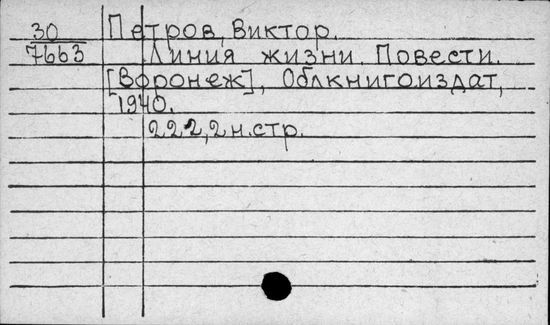 30 Петров, Виктор.
7663 Линия жизни. Повести.
[Воронеж], Облкнигоиздат,
1940.
222, 2 н. стр.